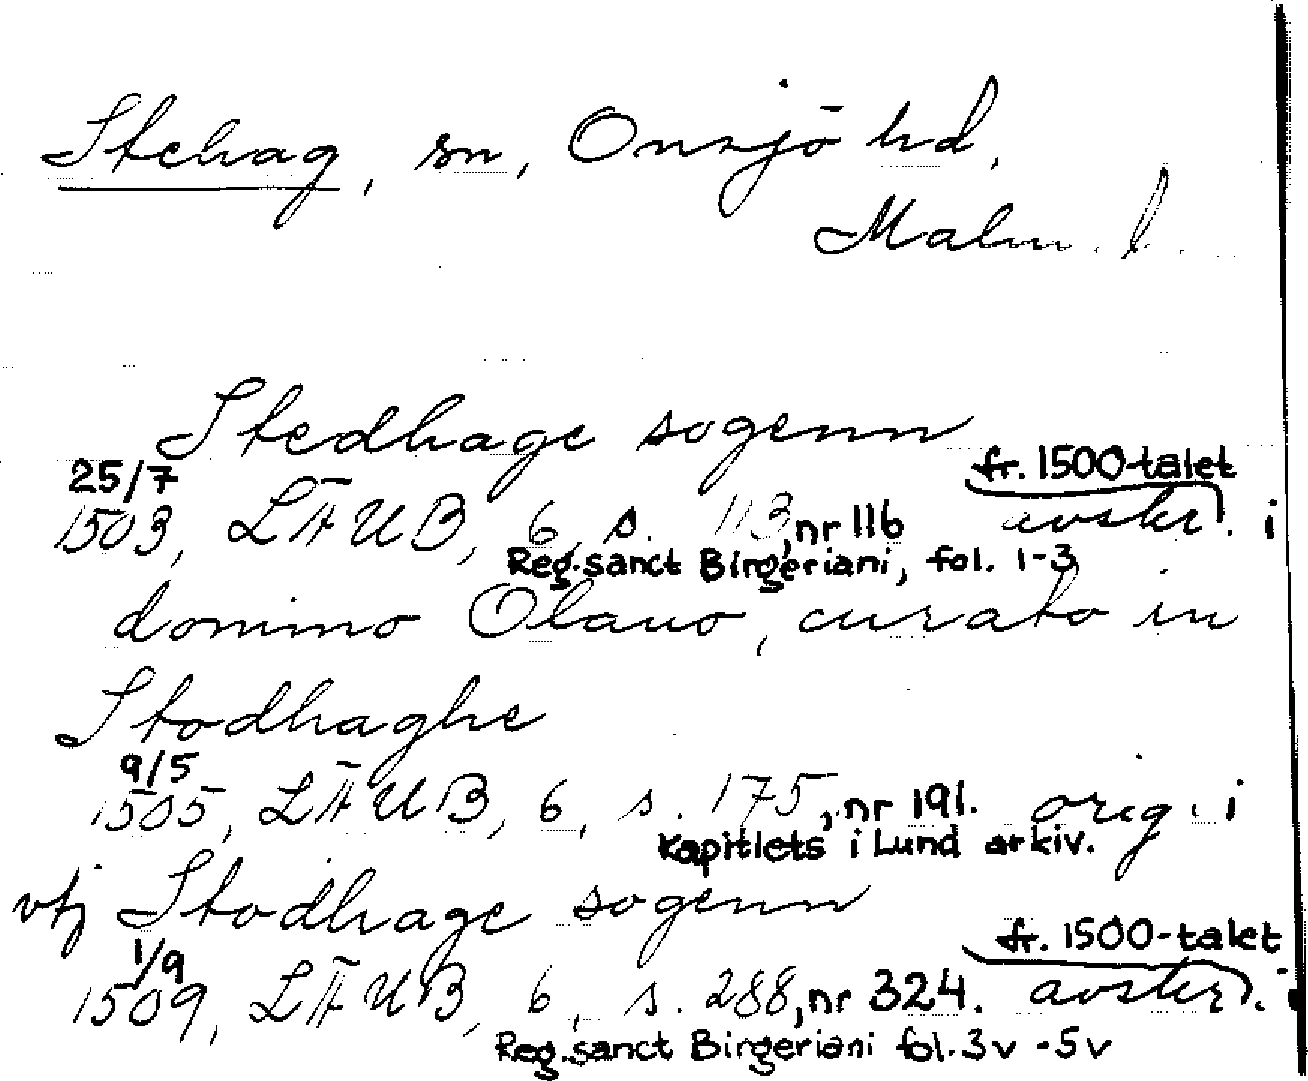 Stehag, sn, Onsjö hd,
Malm. l.
Stedhage sogenn
25/7 fr. 1500-talet
1503, LÄUB, 6, s. 113, nr 116 avskr. i
Reg. sanct Birgeriani, fol. 1-3
domino Olauo, curato in
Stodhaghe
9/5
1505, LÄUB, 6, s. 175, nr 191. orig. i
Kapitlets i Lund arkiv.
vtj Stodhage sogenn
1/9 fr. 1500-talet
1509, LÄUB, 6, s. 288, nr 324. avskr. i
Reg. sanct Birgeriani fol. 3v - 5v